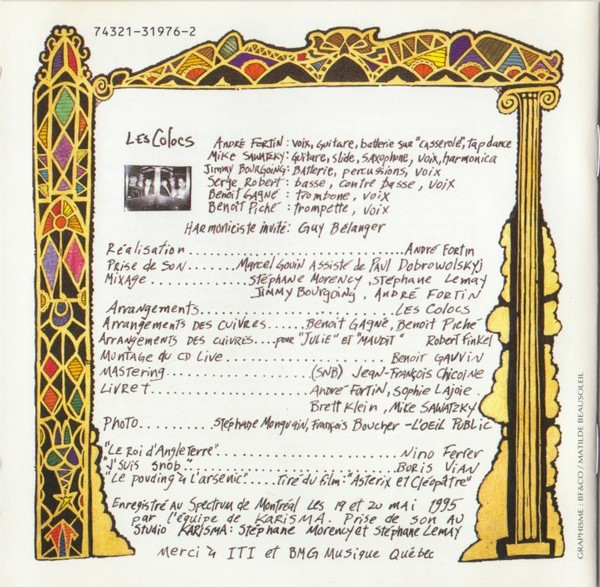 74321-31976-2
LES COLOCS
ANDRÉ FORTIN : voix, guitare, batterie sur "casserole", tap dance
MIKE SAWATZKY : Guitare, slide, saxophone, voix, harmonica
JIMMY BOURGOING : Batterie, percussions, voix
Serge Robert : basse, contre basse, voix
BENOÎT GAGNÉ : trombone, voix
BENOÎT PICHÉ : trompette, voix
HARMONICISTE invité : Guy Bélanger
Réalisation..................ANDRÉ FORTIN
PRISE DE SON.......MARCEL GOUIN ASSISTÉ DE PAUL DOBROWOLSKYJ
MIXAGE..............STÉPHANE MORENCY, STÉPHANE LEMAY
JIMMY BOURGOING, ANDRÉ FORTIN
ARRANGEMENTS..................LES COLOCS
ARRANGEMENTS DES CUIVRES....BENOÎT GAGNÉ, BENOÎT PICHÉ
ARRANGEMENTS DES CUIVRES...POUR "JULIE" ET "MAUDIT" ROBERT FINKEL
MONTAGE DU CD LIVE..............BENOÎT GAUVIN
MASTERING..................(SNB) JEAN-FRANÇOIS CHICOINE
LIVRET..................ANDRÉ FORTIN, SOPHIE LAJOIE
BRETT KLEIN, MIKE SAWATZKY
PHOTO.......Stéphane Mongrain, François Boucher - L'OEIL PUBLIC
"LE ROI D'ANGLETERRE"..................NINO FERRER
"J'SUIS SNOB"..................BORIS VIAN
"LE POUDING À L'ARSENIC".....TIRÉ DU FILM : "ASTÉRIX ET CLÉOPÂTRE"
ENREGISTRÉ AU SPECTRUM DE MONTRÉAL LES 19 ET 20 MAI 1995
par l'équipe de KARISMA. Prise de son au
STUDIO KARISMA : Stéphane Morency et Stéphane Lemay
Merci à ITI et BMG Musique Québec
GRAPHISME : BF&CO / MATILDE BEAUSOLEIL